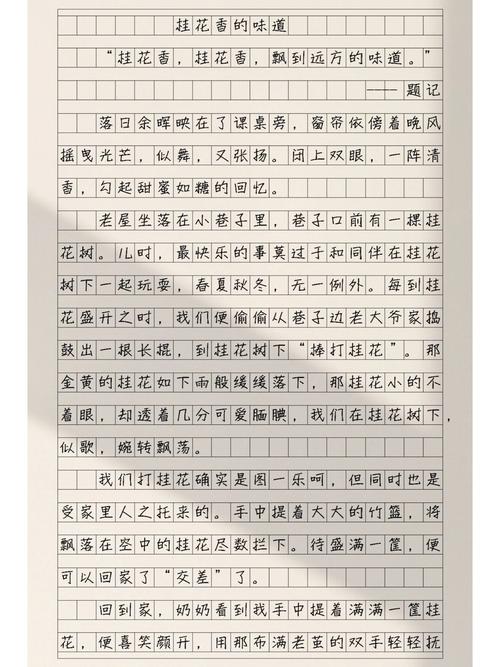 挂花香的味道
“挂花香，挂花香，飘到远方的味道。”
—— 题记
落日余晖映在了课桌旁，窗帘依傍着晚风
摇曳光芒，似舞，又张扬。闭上双眼，一阵清
香，勾起甜蜜如糖的回忆。
老屋坐落在小巷子里，巷子口前有一棵挂
花树。儿时，最快乐的事莫过于和同伴在挂花
树下一起玩耍，春夏秋冬，无一例外。每到挂
花盛开之时，我们便偷偷从巷子边老大爷家捣
鼓出一根长棍，到挂花树下“捧打挂花”。那
金黄的挂花如下雨般缓缓落下，那挂花小的不
着眼，却透着几分可爱腼腆，我们在挂花树下，
似歌，婉转飘荡。
我们打挂花确实是图一乐呵，但同时也是
受家里人之托来的。手中提着大大的竹篮，将
飘落在空中的挂花尽数拦下。待盛满一筐，便
可以回家了“交差”了。
回到家，奶奶看到我手中提着满满一筐挂
花，便喜笑颜开，用那布满老茧的双手轻轻抚